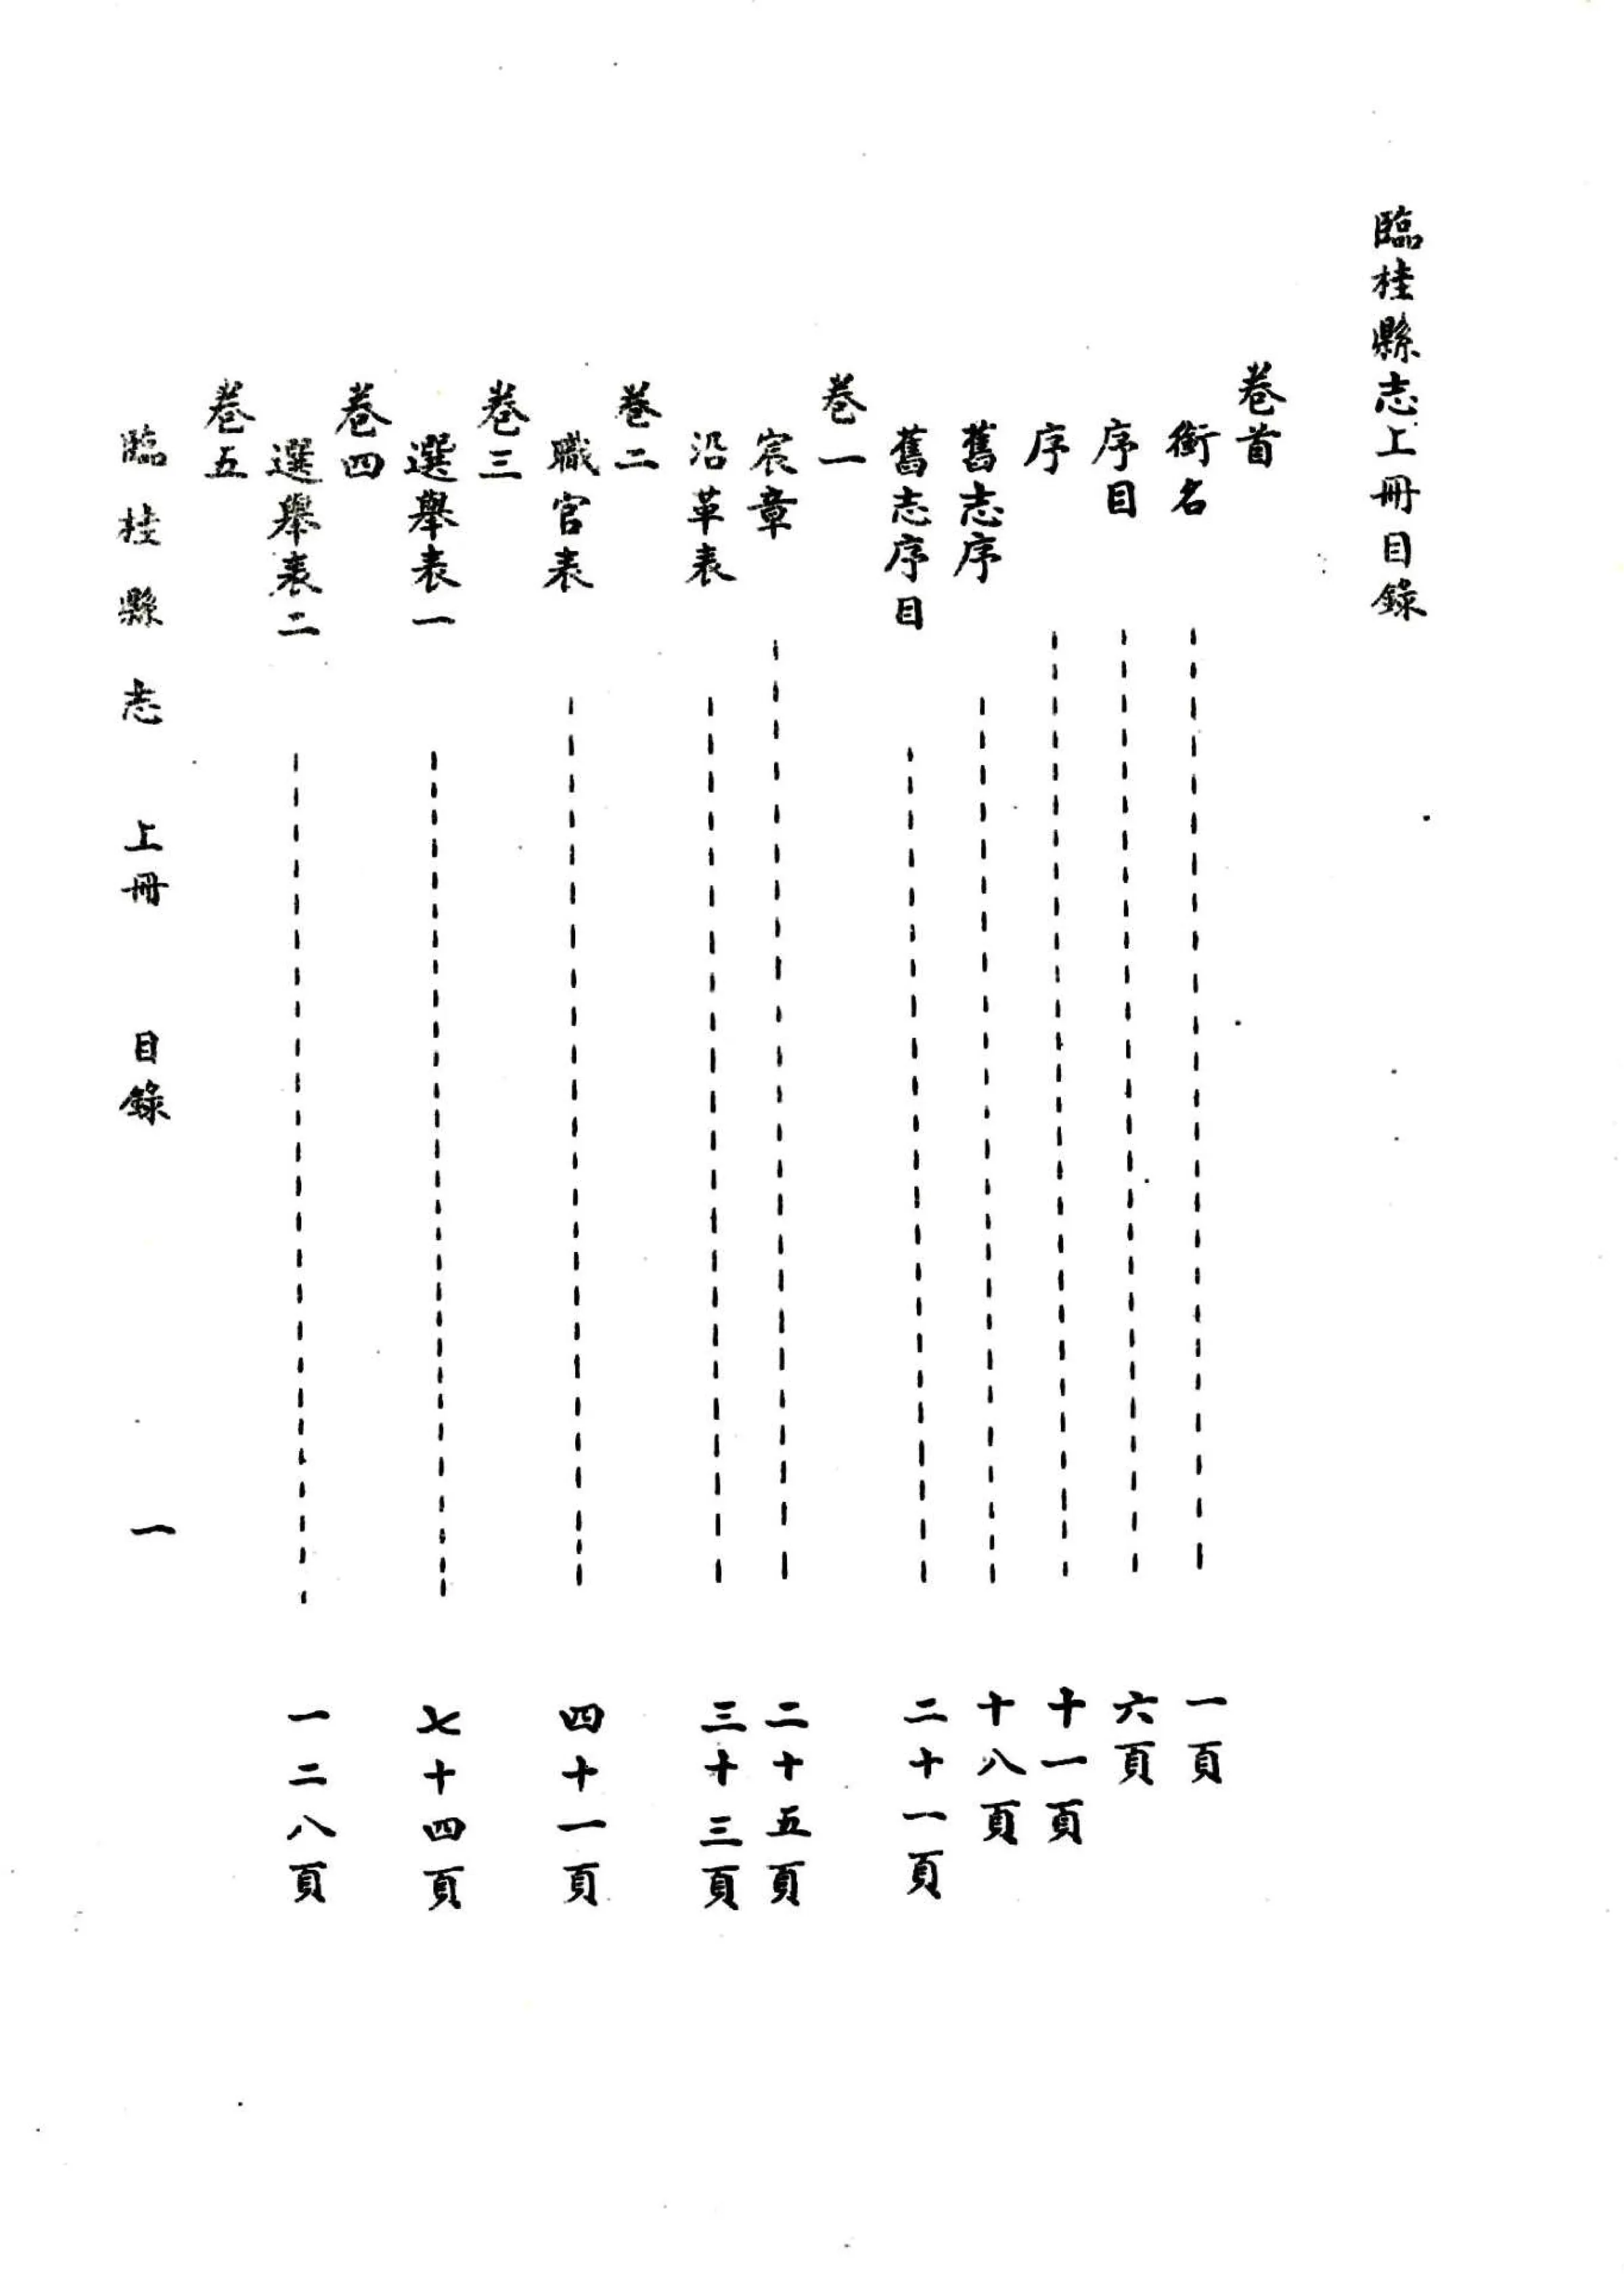 臨桂縣志上冊目錄
卷首
銜名 一頁
序目 六頁
序 十一頁
舊志序 十八頁
舊志序目 二十一頁
卷一
宸章 二十五頁
沿革表 三十三頁
卷二
職官表 四十一頁
卷三
選舉表一 七十四頁
卷四
選舉表二 一二八頁
卷五
臨桂縣志 上冊 目錄 一